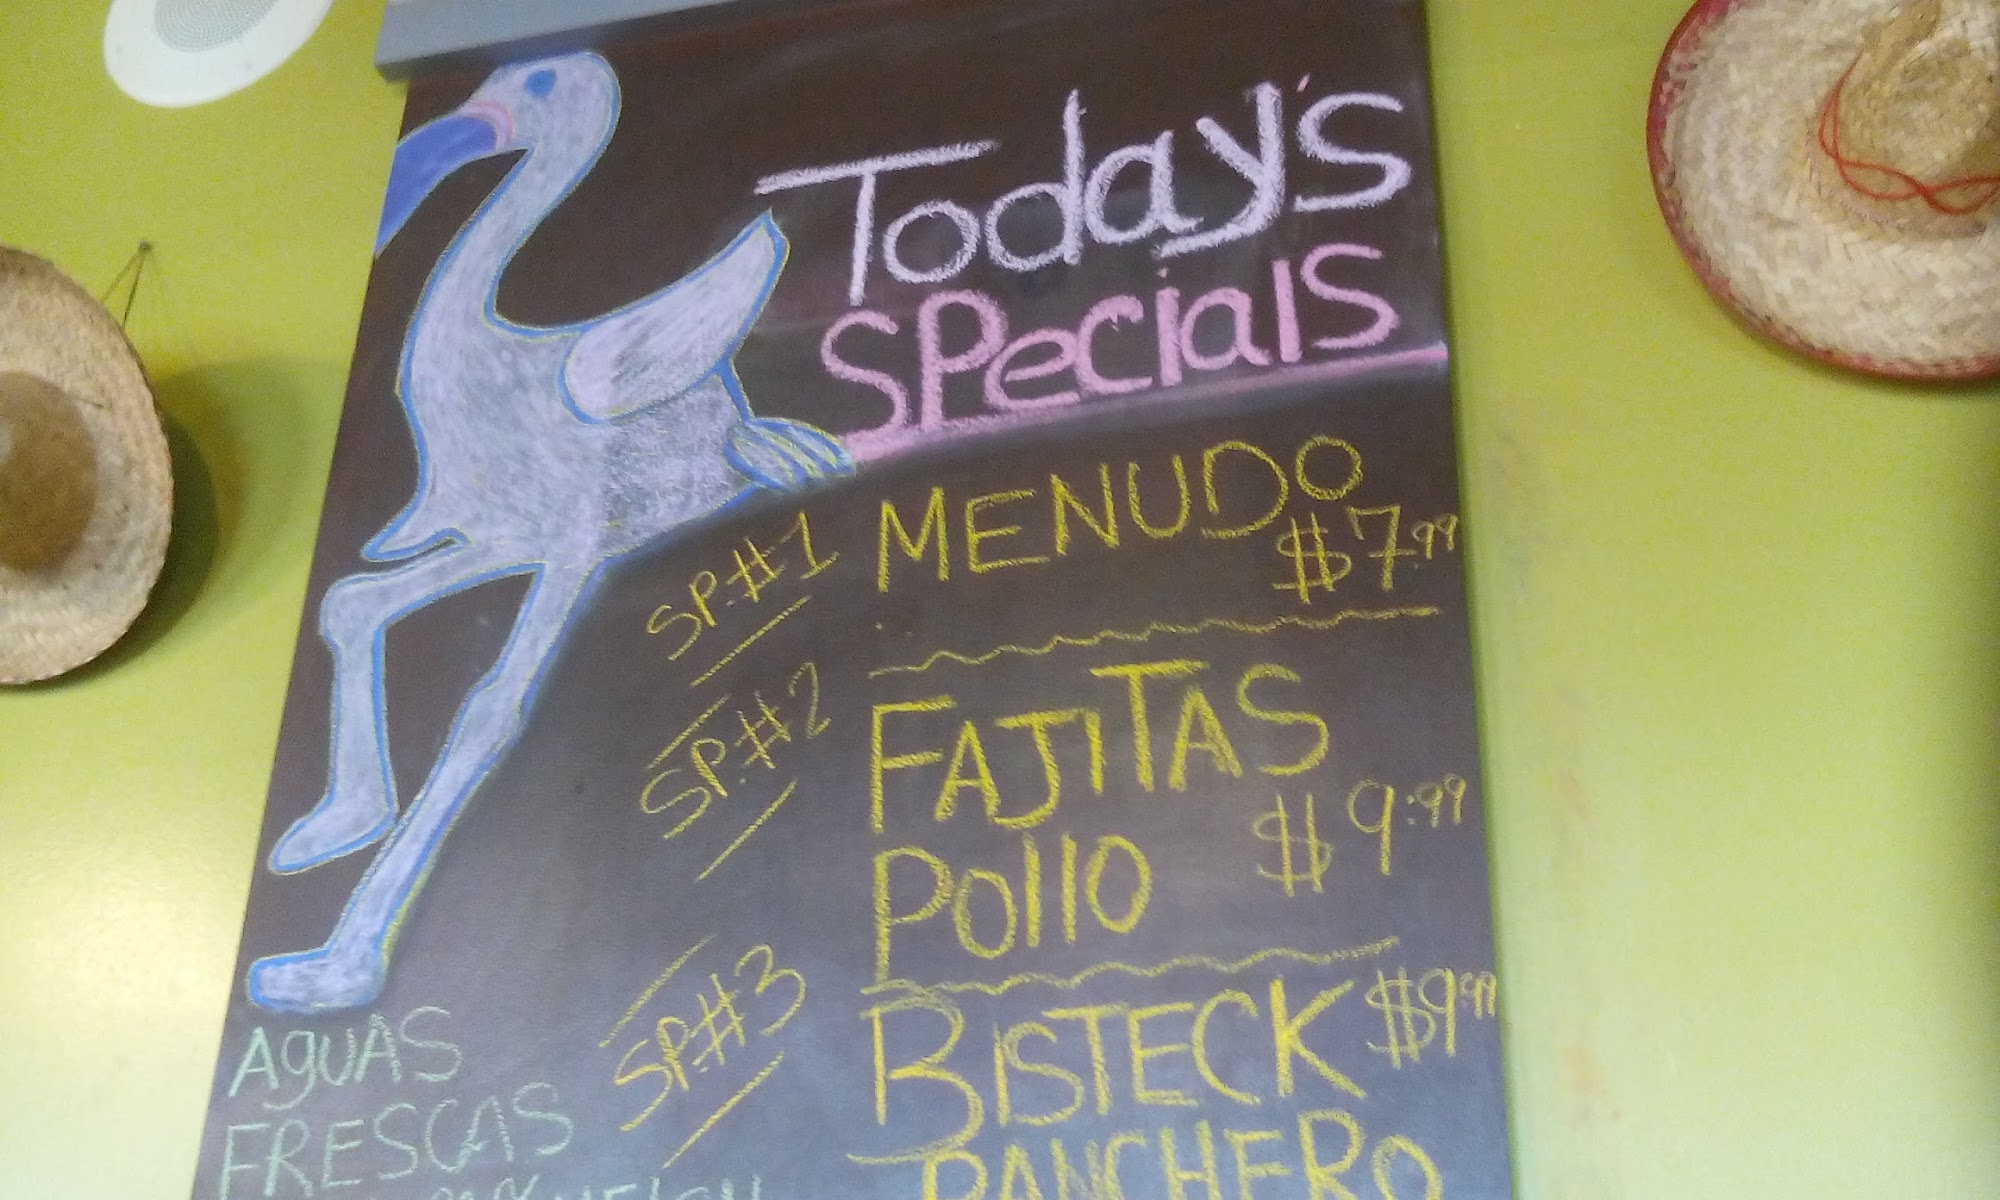 Today's
Specials
SP.#1 MENUDO
$7.99
SP.#2 FAJITAS
POllO $9.99
SP.#3 BISTECK $9.99
RANCHERO
AguAS
FRESCAS